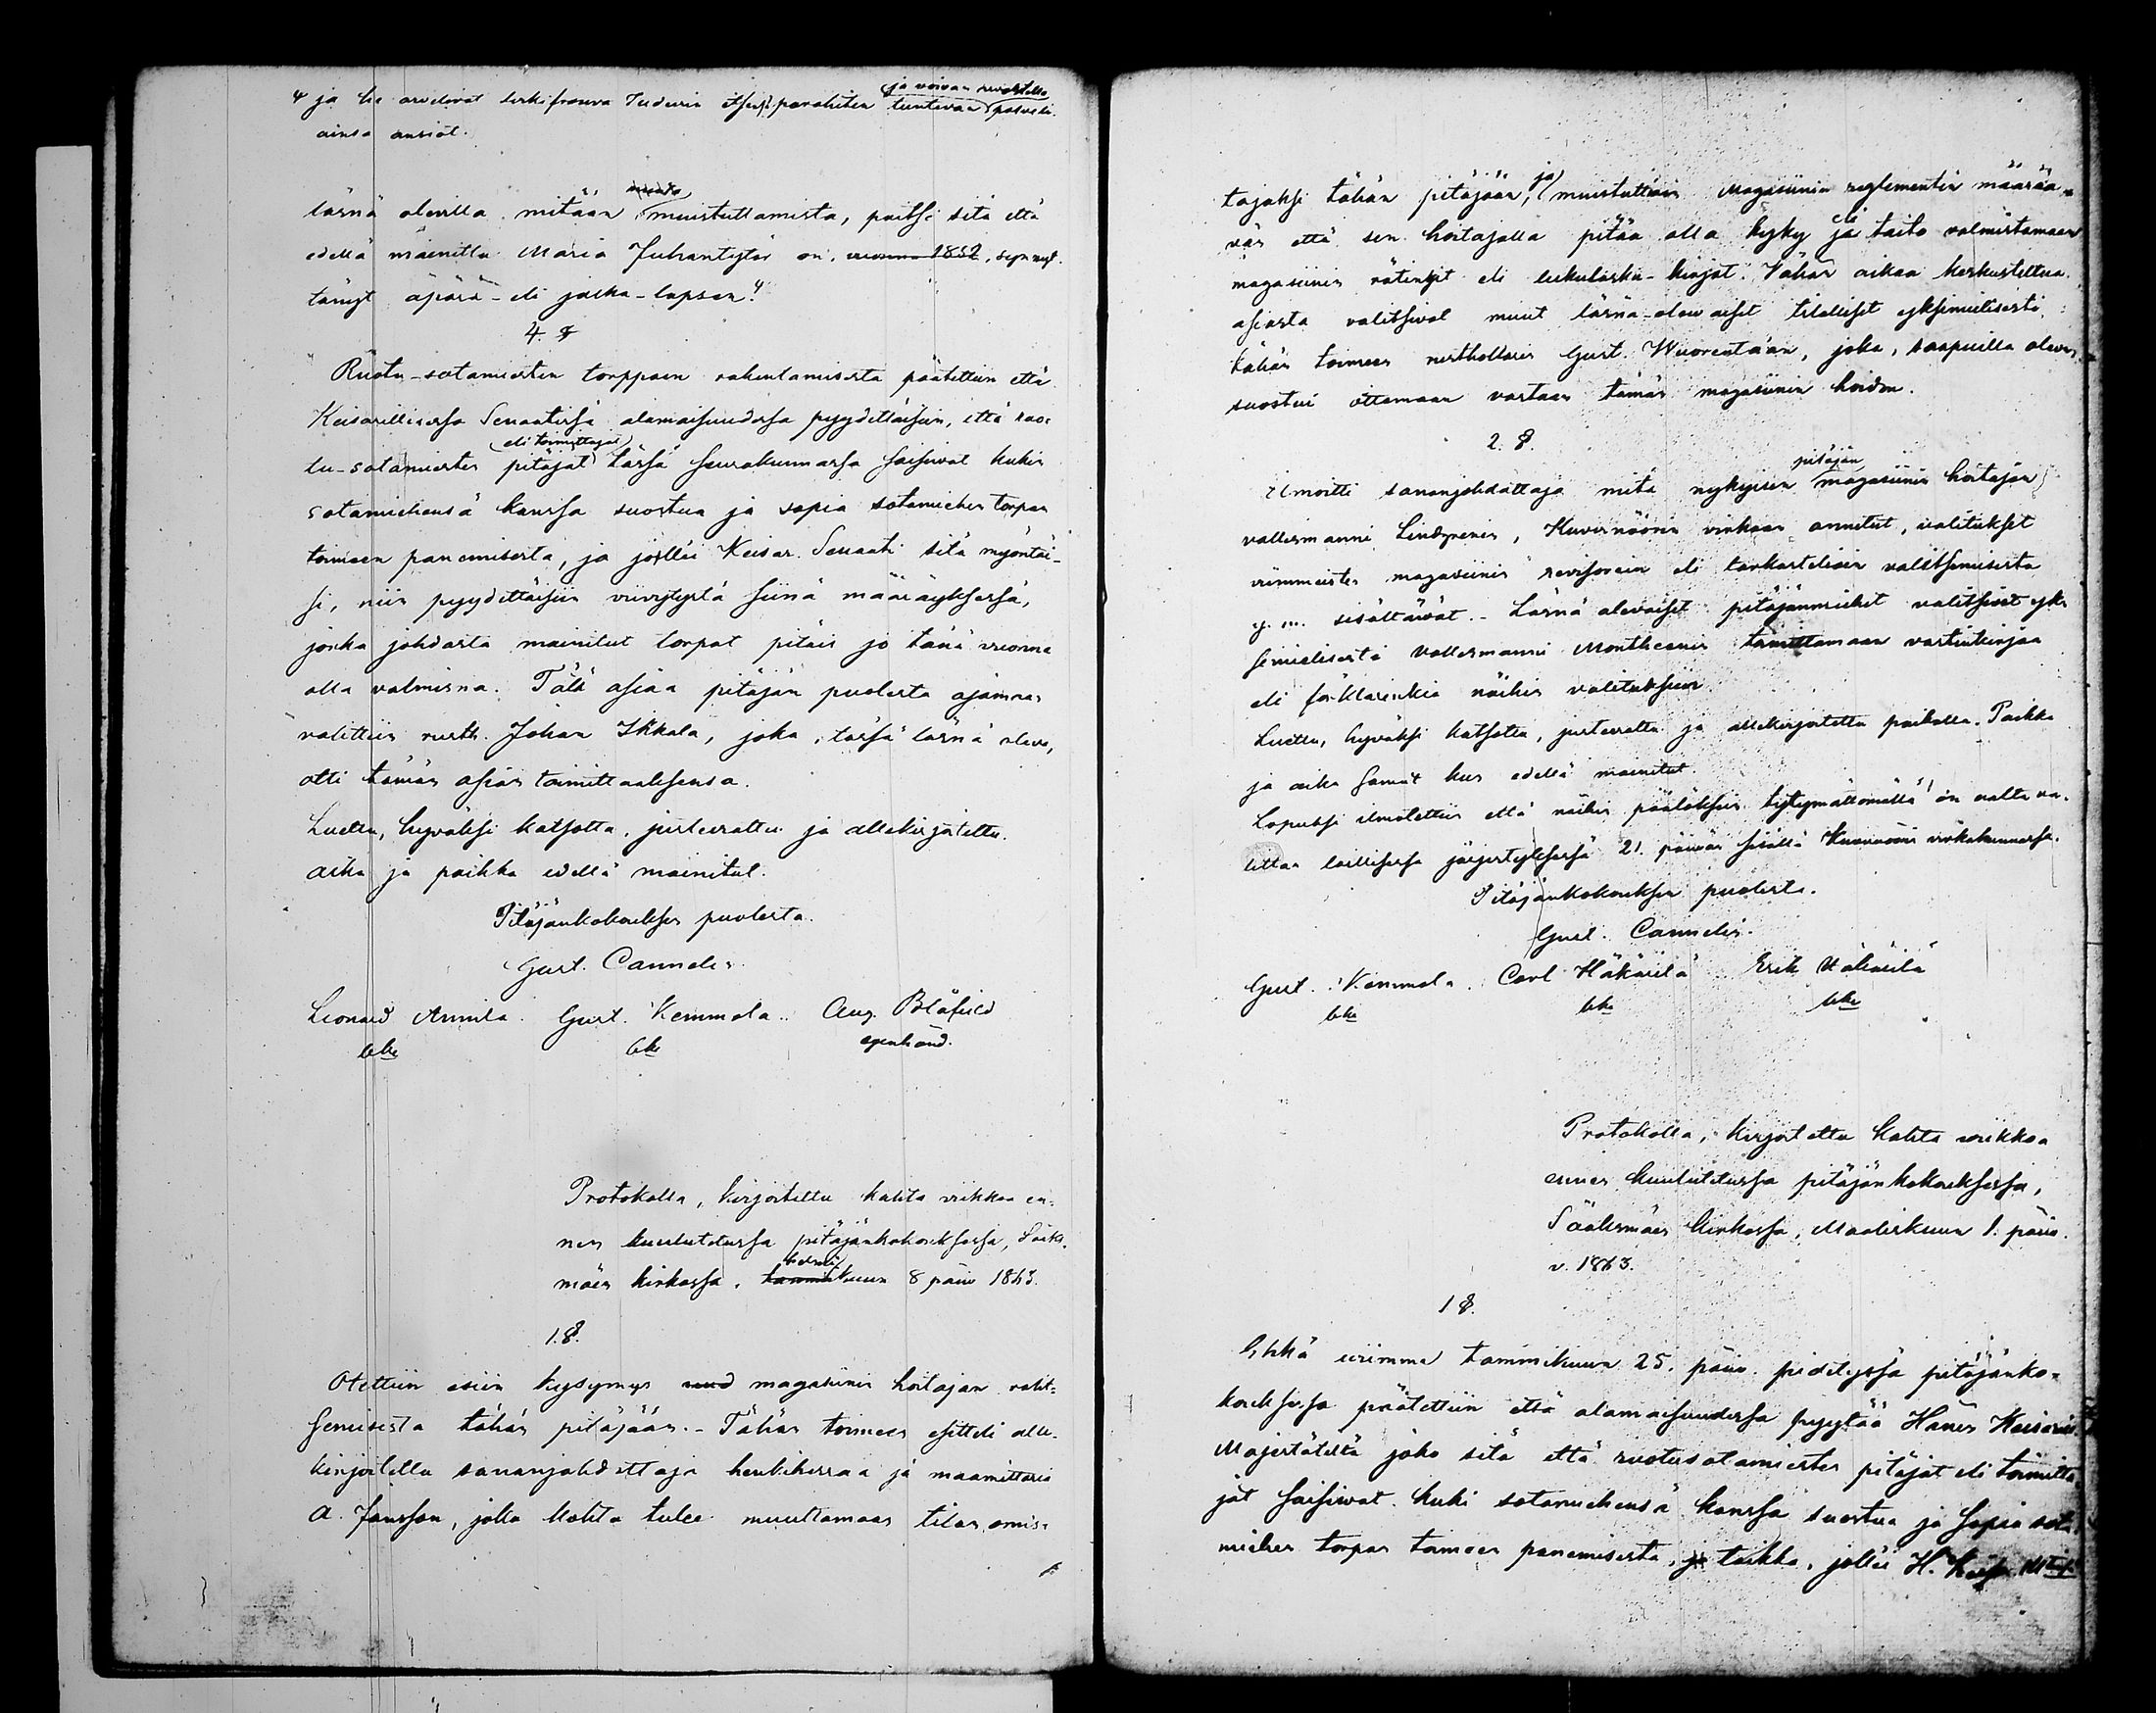 ja he arvelivat leskifrouva Tudeerin itsensä parahiten tuntevan ja voivan palveli-
ainsa ansiot.
läsnä olevilla mitään muistuttamista, paitsi sitä että
edellä mainittu Maria Juhantytär on, vuonna 1852, synnyt-
tänyt äpärä- eli jalka-lapsen.
4. §
Ruotu-sotamiesten torppien rakentamisesta päätettiin että
Keisarillisessa Senaatissa alamaisuudessa pyydettäisiin, että ruo-
tu-sotamiesten pitäjät eli toimittajat tässä seurakunnassa saisivat kukin
sotamiehensä kanssa suostua ja sopia sotamiehen torpan
toimeen panemisesta, ja jollei Keisar. Senaati sitä myöntäi-
si, niin pyydettäisiin viivytystä siinä määräyksessä,
jonka johdosta mainitut torpat pitäis jo tänä vuonna
olla valmisna. Tätä asiaa pitäjän puolesta ajamaan
valittiin rusth. Johan Ikkala, joka, tässä läsnä oleva,
otti tämän asian toimittaaksensa.
Luettu, hyväksi katsottu, justeerattu ja allekirjoitettu.
aika ja paikka edellä mainitut.
Pitäjänkokouksen puolesta.
Gust. Cannelin
Leonard Annila. Gust. Kemmola. Aug. Blåfield
bkr bkr egenhänd.
Protokolla, kirjoitettu kahta viikkoa en-
nen kuulutetussa pitäjänkokouksessa, Sääks-
mäen kirkossa, helmi kuun 8 päiv 1863.
1. §.
Otettiin esiin kysymys uud magasiinin hoitajan valit-
semisesta tähän pitäjään. - Tähän toimeen esitteli alle-
kirjoitettu sananjohdattaja henkiherraa ja maamittaria
A. Jansson, jolla kohta tulee muuttamaan tilan omis-
tajaksi tähän pitäjään, ja muistuttain Magasiinin reglementin määrää-
vän että sen hoitajalla pitää olla kyky eli taito valmistamaan
magasiinin rätingit eli lukulasku-kirjat. Vähän aikaa keskusteltua
asiasta valitsivat muut läsnä-olevaiset tilalliset yksimielisesti
tähän toimeen rusthollarin Gust. Wuorentaan, joka, saapuilla oleva,
suostui ottamaan vastaan tämän magasiinin hoidon.
2. §.
Ilmoitti sananjohdattaja mitä nykyisen pitäjän magasiinin hoitajan
vallesmanni Lindgrenin, Kuvernöörin virkaan annetut, valitukset
viimmeisten magasiinin revisorein eli tarkastelioin valitsemisesta
y. m. sisältäwät. - Läsnä olevaiset pitäjänmiehet valitsivat yk-
simielisesti vallesmanni Montheenin toimittamaan vastinkirjaa
eli förklarinkia näihin valituksiin.
Luettu, hyväksi katsottu, justeerattu ja allekirjoitettu paikalla. Paikka
ja aika samat kuin edellä mainitut.
Lopuksi ilmoitettiin että näihin päätöksiin tytymättömällä on valta va-
littaa laillisessa järjestyksessä 21. päivän sisällä Kuvernöörin virkakunnassa.
Pitäjänkokouksen puolesta.
Gust. Cannelin.
Gust. Kemmola. Carl Häkäilä Erik Uskila
bkr bkr bkr
Protokolla, kirjoitettu kahta viikkoa
ennen kuulutetussa pitäjänkokouksessa,
Sääksmäen kirkossa, Maaliskuun 1. päiv.
v. 1863.
1 §.
Ehkä viimme tammikuun 25. päiv. pidetyssä pitäjänko-
kouksessa päätettiin että alamaisuudessa pyytää Hänen Keisarill.
Majestätiltä joko sitä että ruotusotamiesten pitäjät eli toimitta-
jat saisivat kuki sotamiehensä kanssa suostua ja sopia sota-
miehen torpan toimeen panemisesta, taikka, jollei H. Keis. Maj.